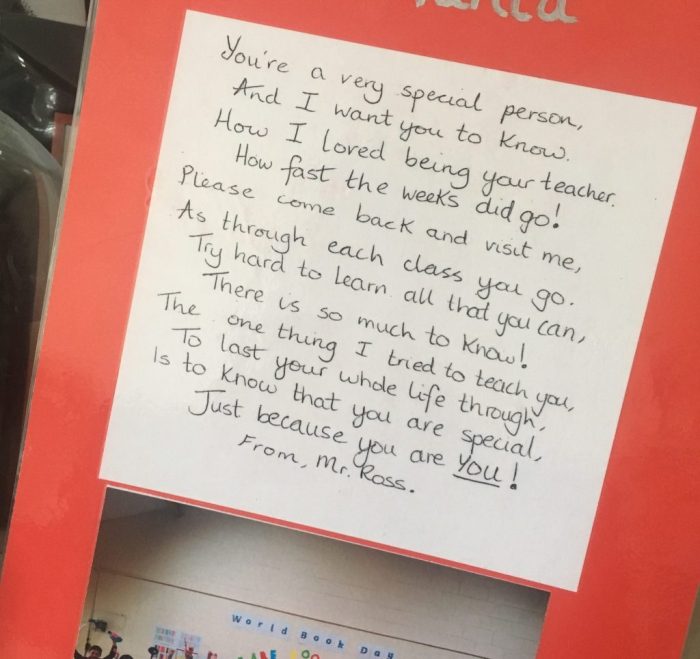 You're a very special person,
And I want you to know.
How I loved being your teacher.
How fast the weeks did go!
Please come back and visit me,
As through each class you go.
Try hard to learn all that you can,
There is so much to know!
The one thing I tried to teach you,
To last your whole life through,
Is to know that you are special,
Just because you are YOU!
From, Mr. Ross.
World Book Day